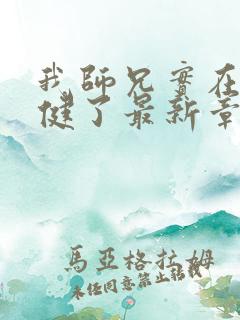 我師兄實在
健了最新章
馬亞格拉姆
未经同意禁止転載